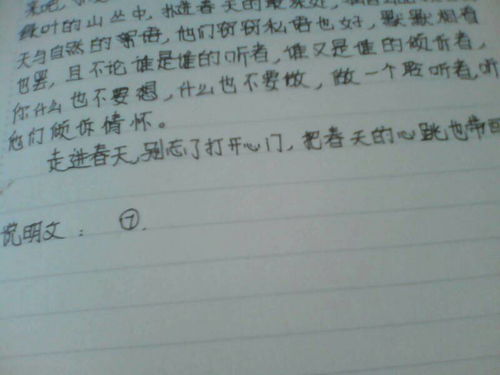 来吧,
绿叶的山丛中,扑进春天的最深处,
天与自然的密语,他们窃窃私语也好,默默相看
也罢,且不论谁是谁的听者,谁又是谁的倾诉者,
你什么也不要想,什么也不要做,做一个聆听者,听
他们倾诉情怀。
走进春天,别忘了打开心门,把春天的心跳也带回
说明文: ⑦.